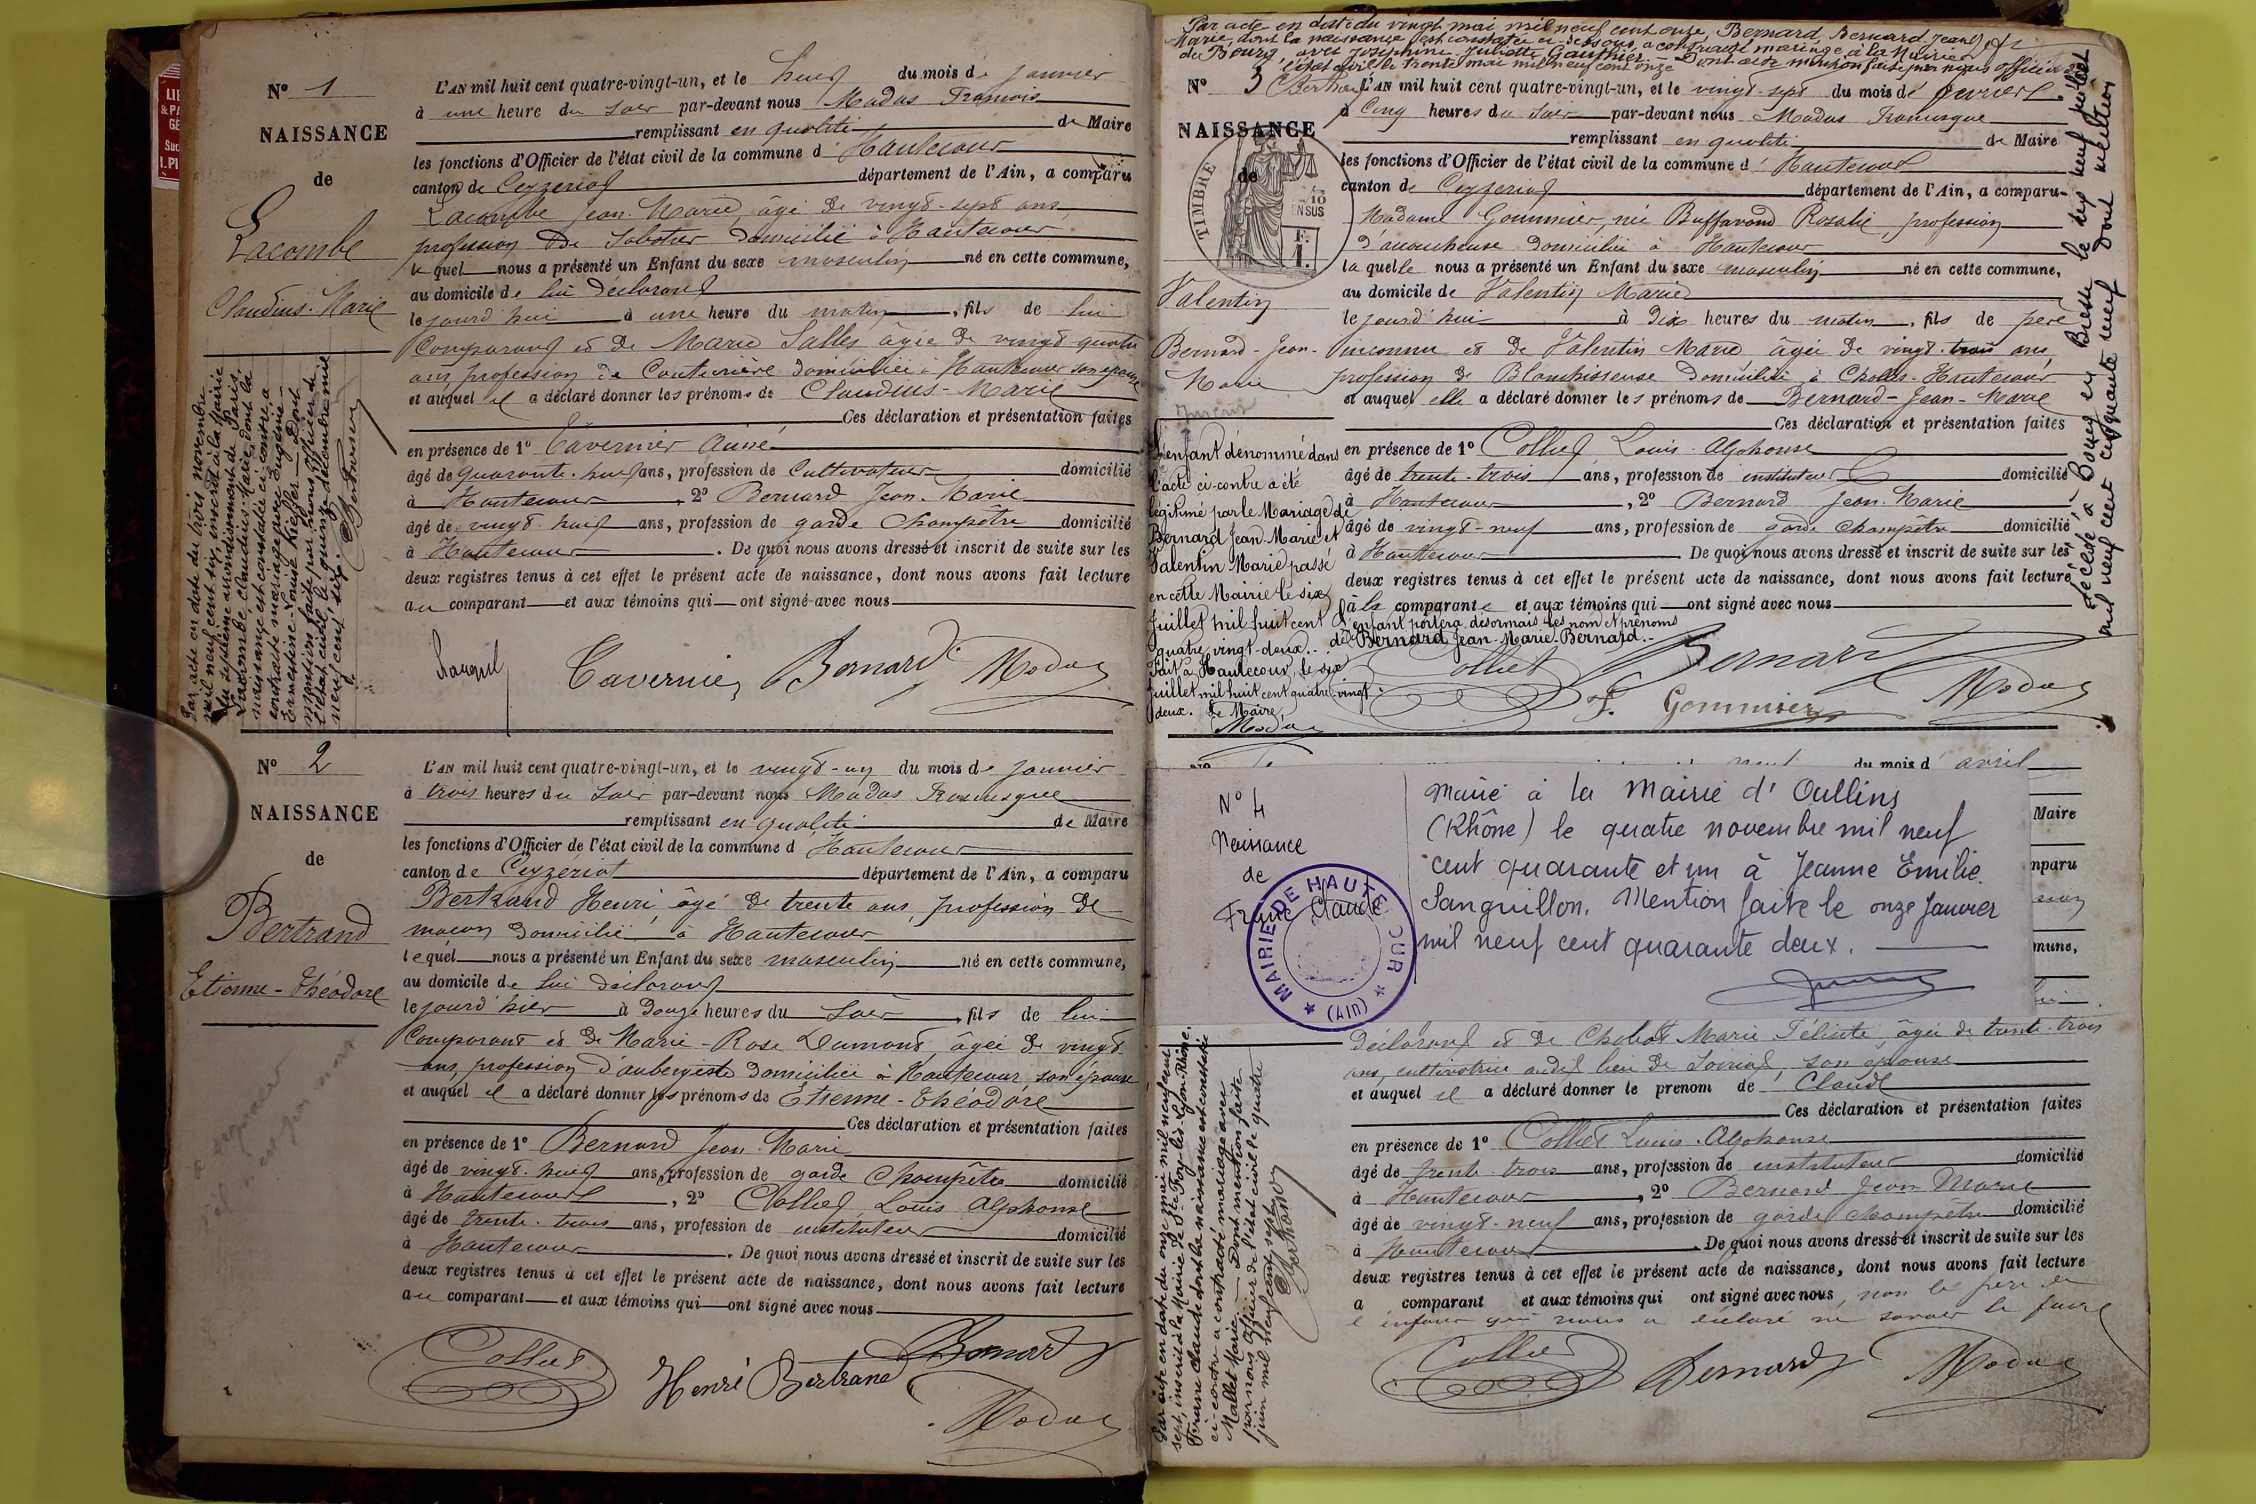 N° 1
NAISSANCE
de
Lacombe
Claudius-Marie
L'AN mil huit cent quatre-vingt-un, et le huit du mois de janvier
à une heure du soir par-devant nous Modas François
remplissant en qualité de Maire
les fonctions d'Officier de l'état civil de la commune d' Hautecour
canton de Ceyzériat département de l'Ain, a comparu
Lacombe Jean-Marie, âgé de vingt-sept ans
profession de Sabotier domicilié à Hautecour
le quel nous a présenté un Enfant du sexe masculin né en cette commune,
au domicile de lui déclarant
le jourd'hui à une heure du matin, fils de lui
comparant et de Marie Salles âgée de vingt-quatre
ans profession de Couturière domiciliée à Hautecour son épouse
et auquel il a déclaré donner les prénoms de Claudius-Marie
Ces déclaration et présentation faites
en présence de 1° Tavernier Aimé
âgé de quarante-huit ans, profession de Cultivateur domicilié
à Hautecour, 2° Bernard Jean-Marie
âgé de vingt-huit ans, profession de garde Champêtre domicilié
à Hautecour. De quoi nous avons dressé et inscrit de suite sur les
deux registres tenus à cet effet le présent acte de naissance, dont nous avons fait lecture
au comparant et aux témoins qui ont signé avec nous
Tavernier Bernard Modas
Par acte en date du trois novembre
mil neuf cent six, inscrit à la Mairie
du septième arrondissement de Paris,
Lacombe Claudius-Marie, dont la
naissance est constatée ci-contre, a
contracté mariage avec Eugénie-
Ernestine-Louise Kieffer. Dont
mention faite par nous officier de
l'état civil, le quinze décembre mil
neuf cent six.
N° 2
NAISSANCE
de
Bertrand
Etienne-Théodore
L'AN mil huit cent quatre-vingt-un, et le vingt-un du mois de janvier
à trois heures du soir par-devant nous Modas Francisque
remplissant en qualité de Maire
les fonctions d'Officier de l'état civil de la commune d' Hautecour
canton de Ceyzériat département de l'Ain, a comparu
Bertrand Henri, âgé de trente ans, profession de
maçon domicilié à Hautecour
le quel nous a présenté un Enfant du sexe masculin né en cette commune,
au domicile de lui déclarant
le jourd'hier à douze heures du soir, fils de lui
Comparant et de Marie-Rose Dumont, âgée de vingt
ans, profession d'aubergiste domiciliée à Hautecour, son épouse
et auquel il a déclaré donner les prénoms de Etienne-Théodore
Ces déclaration et présentation faites
en présence de 1° Bernard Jean Marie
âgé de vingt-huit ans, profession de garde Champêtre domicilié
à Hautecour, 2° Colliet, Louis Alphonse
âgé de trente-trois ans, profession de instituteur domicilié
à Hautecour. De quoi nous avons dressé et inscrit de suite sur les
deux registres tenus à cet effet le présent acte de naissance, dont nous avons fait lecture
au comparant et aux témoins qui ont signé avec nous
Colliet Henri Bertrand Bernard
Modas
Par acte en date du vingt mai mil neuf cent onze, Bernard, Bernard Jean
Marie, dont la naissance est constatée ci-dessous, a contracté mariage à la Mairie
de Bourg, avec Joséphine Juliette Gauthier. Dont acte mention faite par nous officier de
l'état civil le trente mai mil neuf cent onze
N° 3
NAISSANCE
de
TIMBRE
Valentin
Bernard-Jean-
Marie
L'AN mil huit cent quatre-vingt-un, et le vingt-sept du mois de février
à cinq heures du soir par-devant nous Modas Francisque
remplissant en qualité de Maire
les fonctions d'Officier de l'état civil de la commune d' Hautecour
canton de Ceyzériat département de l'Ain, a comparu
Madame Gommier, née Buffavand Rosalie, profession
d'accoucheuse domiciliée à Hautecour
la quelle nous a présenté un Enfant du sexe masculin né en cette commune,
au domicile de Valentin Marie
le jourd'hui à dix heures du matin, fils de père
inconnu et de Valentin Marie âgée de vingt-trois ans,
profession de Blanchisseuse domiciliée à Hautecour
et auquel elle a déclaré donner les prénoms de Bernard-Jean-Marie
Ces déclaration et présentation faites
en présence de 1° Colliet Louis Alphonse
âgé de trente-trois ans, profession de instituteur domicilié
à Hautecour, 2° Bernard Jean-Marie
âgé de vingt-neuf ans, profession de garde Champêtre domicilié
à Hautecour De quoi nous avons dressé et inscrit de suite sur les
deux registres tenus à cet effet le présent acte de naissance, dont nous avons fait lecture
à la comparante et aux témoins qui ont signé avec nous
L'enfant portera désormais les nom et prénoms
de Bernard Jean-Marie-Bernard.
Colliet Bernard
F. Gommier Modas
L'enfant dénommé dans
l'acte ci-contre a été
légitimé par le Mariage de
Bernard Jean Marie et
Valentin Marie passé
en cette Mairie le six
Juillet mil huit cent
quatre-vingt-deux.
Fait à Hautecour, le six
Juillet mil huit cent quatre-vingt-
deux. Le Maire
Modas
Décédé à Bourg en Bresse le dix neuf juillet
mil neuf cent cinquante neuf dont mention
du mois d'avril
N° 4
Naissance
de
Frane Claude
MAIRIE DE HAUTECOUR (AIN)
Marié à la Mairie d'Oullins
(Rhône) le quatre novembre mil neuf
cent quarante et un à Jeanne Emilie
Sanguillon. Mention faite le onze Janvier
mil neuf cent quarante deux.
Maire
mparu
mune,
déclarant et de Chobat Marie Félicité, âgée de trente-trois
ans, cultivatrice audit lieu de son épouse
et auquel il a déclaré donner le prénom de Claude
Ces déclaration et présentation faites
en présence de 1° Colliet Louis-Alphonse
âgé de trente-trois ans, profession de instituteur domicilié
à Hautecour, 2° Bernard Jean Marie
âgé de vingt-neuf ans, profession de garde champêtre domicilié
à Hautecour. De quoi nous avons dressé et inscrit de suite sur les
deux registres tenus à cet effet le présent acte de naissance, dont nous avons fait lecture
a comparant et aux témoins qui ont signé avec nous non le père de
l'enfant qui nous a déclaré ne savoir le faire
Colliet Bernard Modas
Par acte en date du onze mai mil neuf cent
sept, inscrit à la Mairie de Ste-Foy-lès-Lyon-Rhône,
Claude dont la naissance est constatée
ci-contre a contracté mariage avec
Mallet Marie. Dont mention faite
par nous officier de l'état civil le quatre
juin mil neuf cent sept.